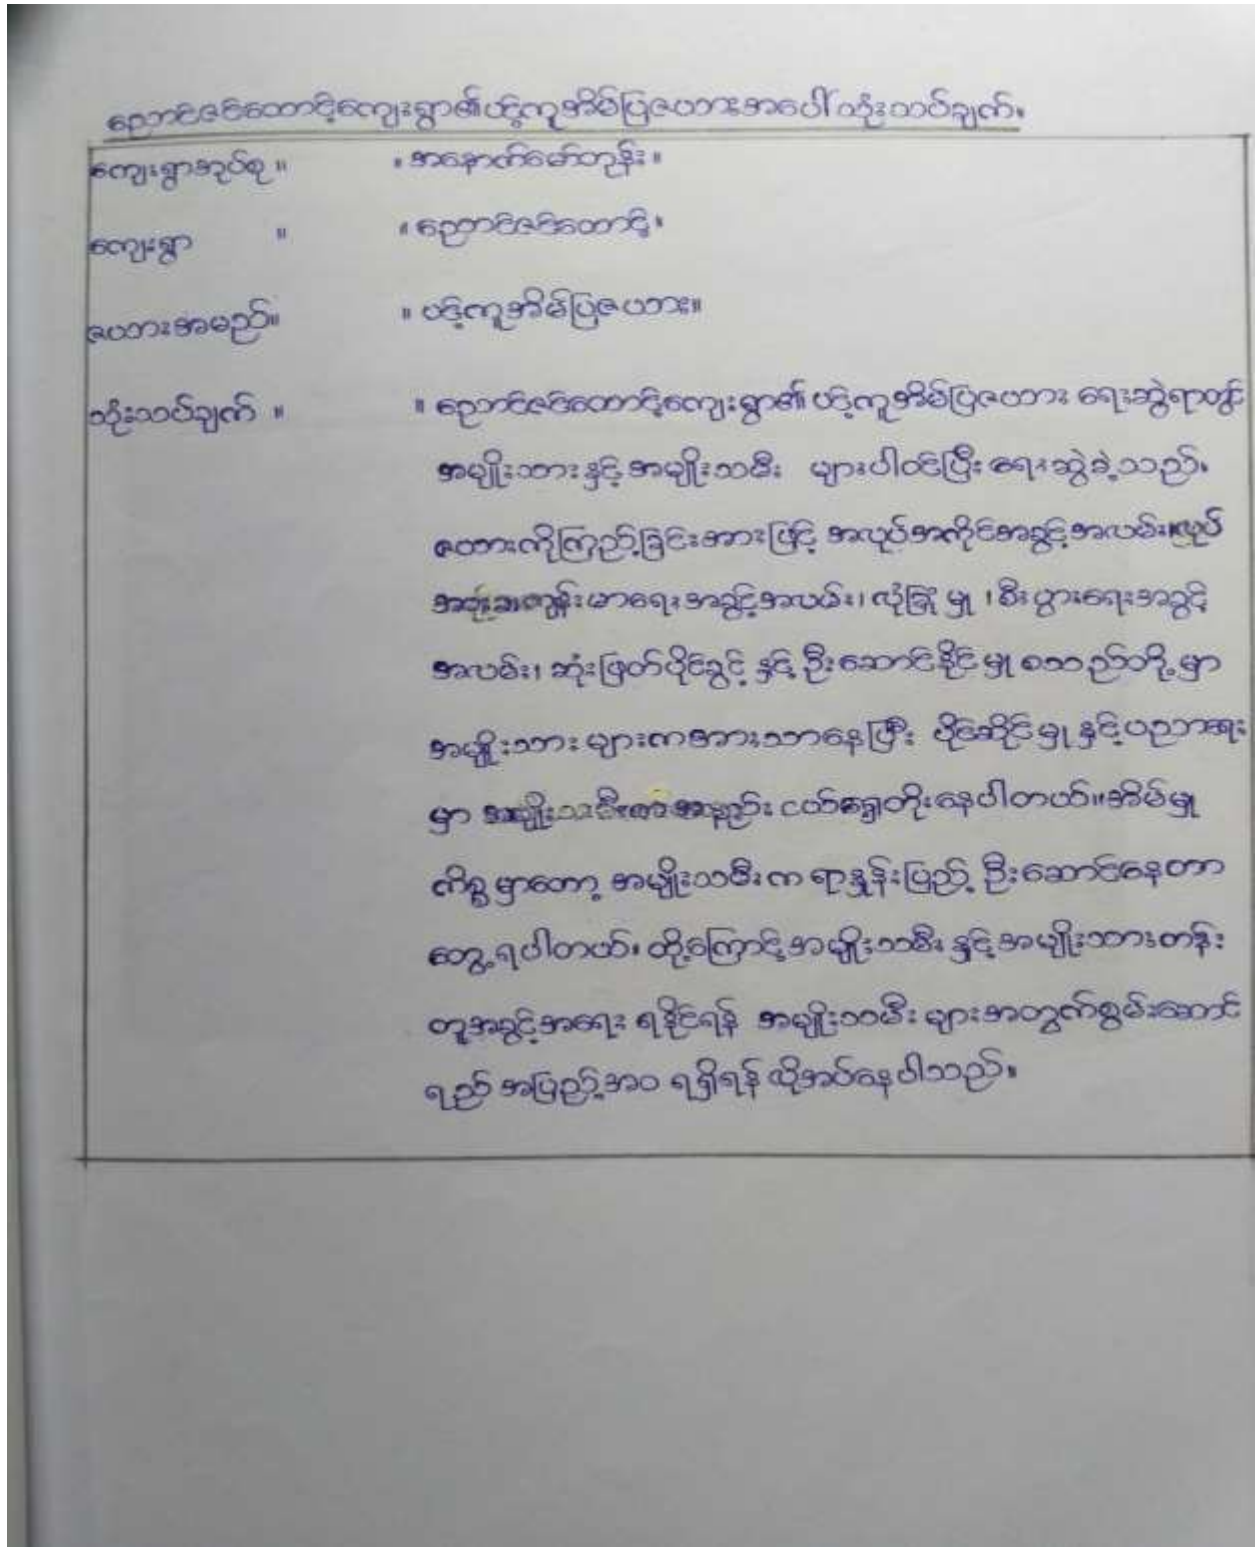 ညောင်ဇင်ထောင့်ကျေးရွာ၏ပင့်ကူအိမ်ပြဇယားအပေါ် သုံးသပ်ချက်။
ကျေးရွာအုပ်စု ။ ။ အနောက်မော်တုန်း။
ကျေးရွာ ။ ။ ညောင်ဇင်ထောင့်။
ဇယားအမည်။ ။ ပင့်ကူအိမ်ပြဇယား။
သုံးသပ်ချက် ။ ။ ညောင်ဇင်ထောင့်ကျေးရွာ၏ ပင့်ကူအိမ်ပြဇယား ရေးဆွဲရာတွင်
အမျိုးသား နှင့် အမျိုးသမီး များပါဝင်ပြီး ရေးဆွဲခဲ့သည်။
ဇယားကိုကြည့်ခြင်းအားဖြင့် အလုပ်အကိုင်အခွင့်အလမ်း၊
ကျန်းမာရေးအခွင့်အလမ်း၊ လုံခြုံမှု ၊ စီးပွားရေးအခွင့်
အလမ်း၊ ဆုံးဖြတ်ပိုင်ခွင့် နှင့် ဦးဆောင်နိုင်မှု စသည်တို့မှာ
အမျိုးသား များကအားသာနေပြီး ပိုင်ဆိုင်မှု နှင့်ပညာရေး
မှာ အမျိုးသမီးက အနည်း ငယ်ရှေ့တိုးနေပါတယ်။အိမ်မှု
ကိစ္စမှာတော့ အမျိုးသမီးက ရာနှုန်းပြည့် ဦးဆောင်နေတာ
တွေ့ရပါတယ်။ ထို့ကြောင့်အမျိုးသမီး နှင့်အမျိုးသားတန်း
တူအခွင့်အရေး ရနိုင်ရန် အမျိုးသမီး များအတွက်စွမ်းဆောင်
ရည် အပြည့်အဝ ရရှိရန် လိုအပ်နေပါသည်။